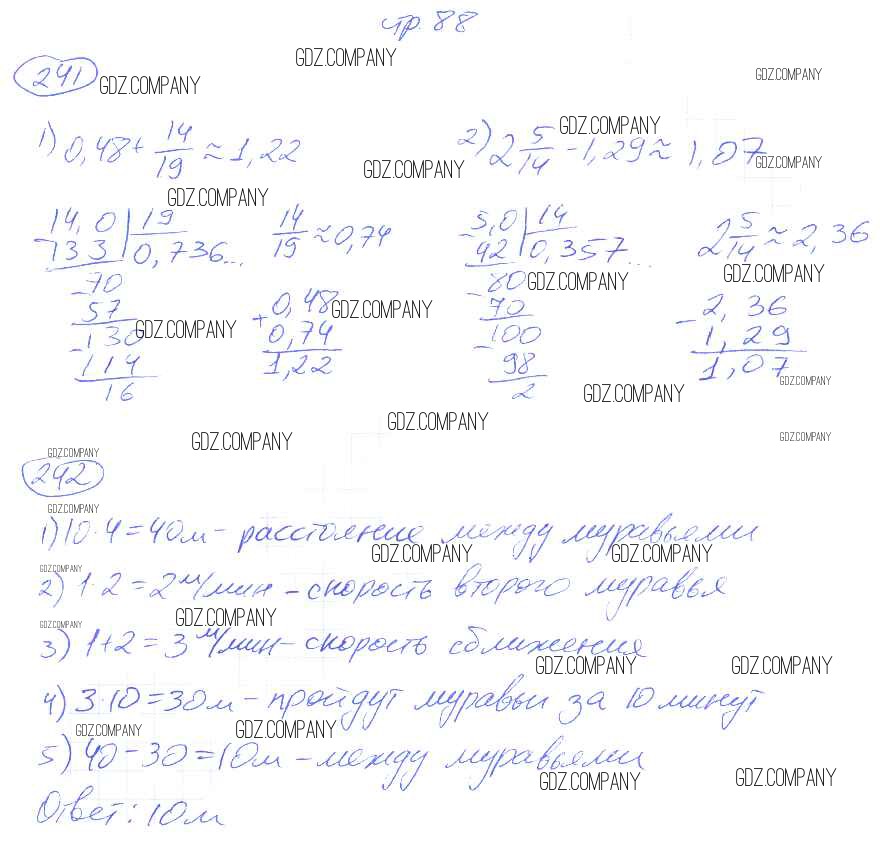 стр. 88
GDZ.COMPANY
GDZ.COMPANY
241 GDZ.COMPANY
1) 0,48 + 14/19 ≈ 1,22
2) 2 5/14 - 1,29 ≈ 1,07
GDZ.COMPANY
GDZ.COMPANY
GDZ.COMPANY
GDZ.COMPANY
14,0 | 19
- 133 | 0,736...
- 70
57
- 130
114
16
14/19 ≈ 0,74
GDZ.COMPANY
GDZ.COMPANY
+ 0,48
0,74
1,22
5,0 | 14
- 42 | 0,357...
- 80
70
- 100
98
2
GDZ.COMPANY
GDZ.COMPANY
2 5/14 ≈ 2,36
GDZ.COMPANY
- 2,36
1,29
1,07
GDZ.COMPANY
GDZ.COMPANY
GDZ.COMPANY
GDZ.COMPANY
GDZ.COMPANY
GDZ.COMPANY
242
GDZ.COMPANY
1) 10·4 = 40м - расстояние между муравьями
GDZ.COMPANY GDZ.COMPANY
GDZ.COMPANY
2) 1·2 = 2 м/мин - скорость второго муравья
GDZ.COMPANY
GDZ.COMPANY
3) 1+2 = 3 м/мин - скорость сближения
GDZ.COMPANY GDZ.COMPANY
4) 3·10 = 30м - пройдут муравьи за 10 минут
GDZ.COMPANY GDZ.COMPANY
5) 40 - 30 = 10м - между муравьями
GDZ.COMPANY GDZ.COMPANY
Ответ: 10м